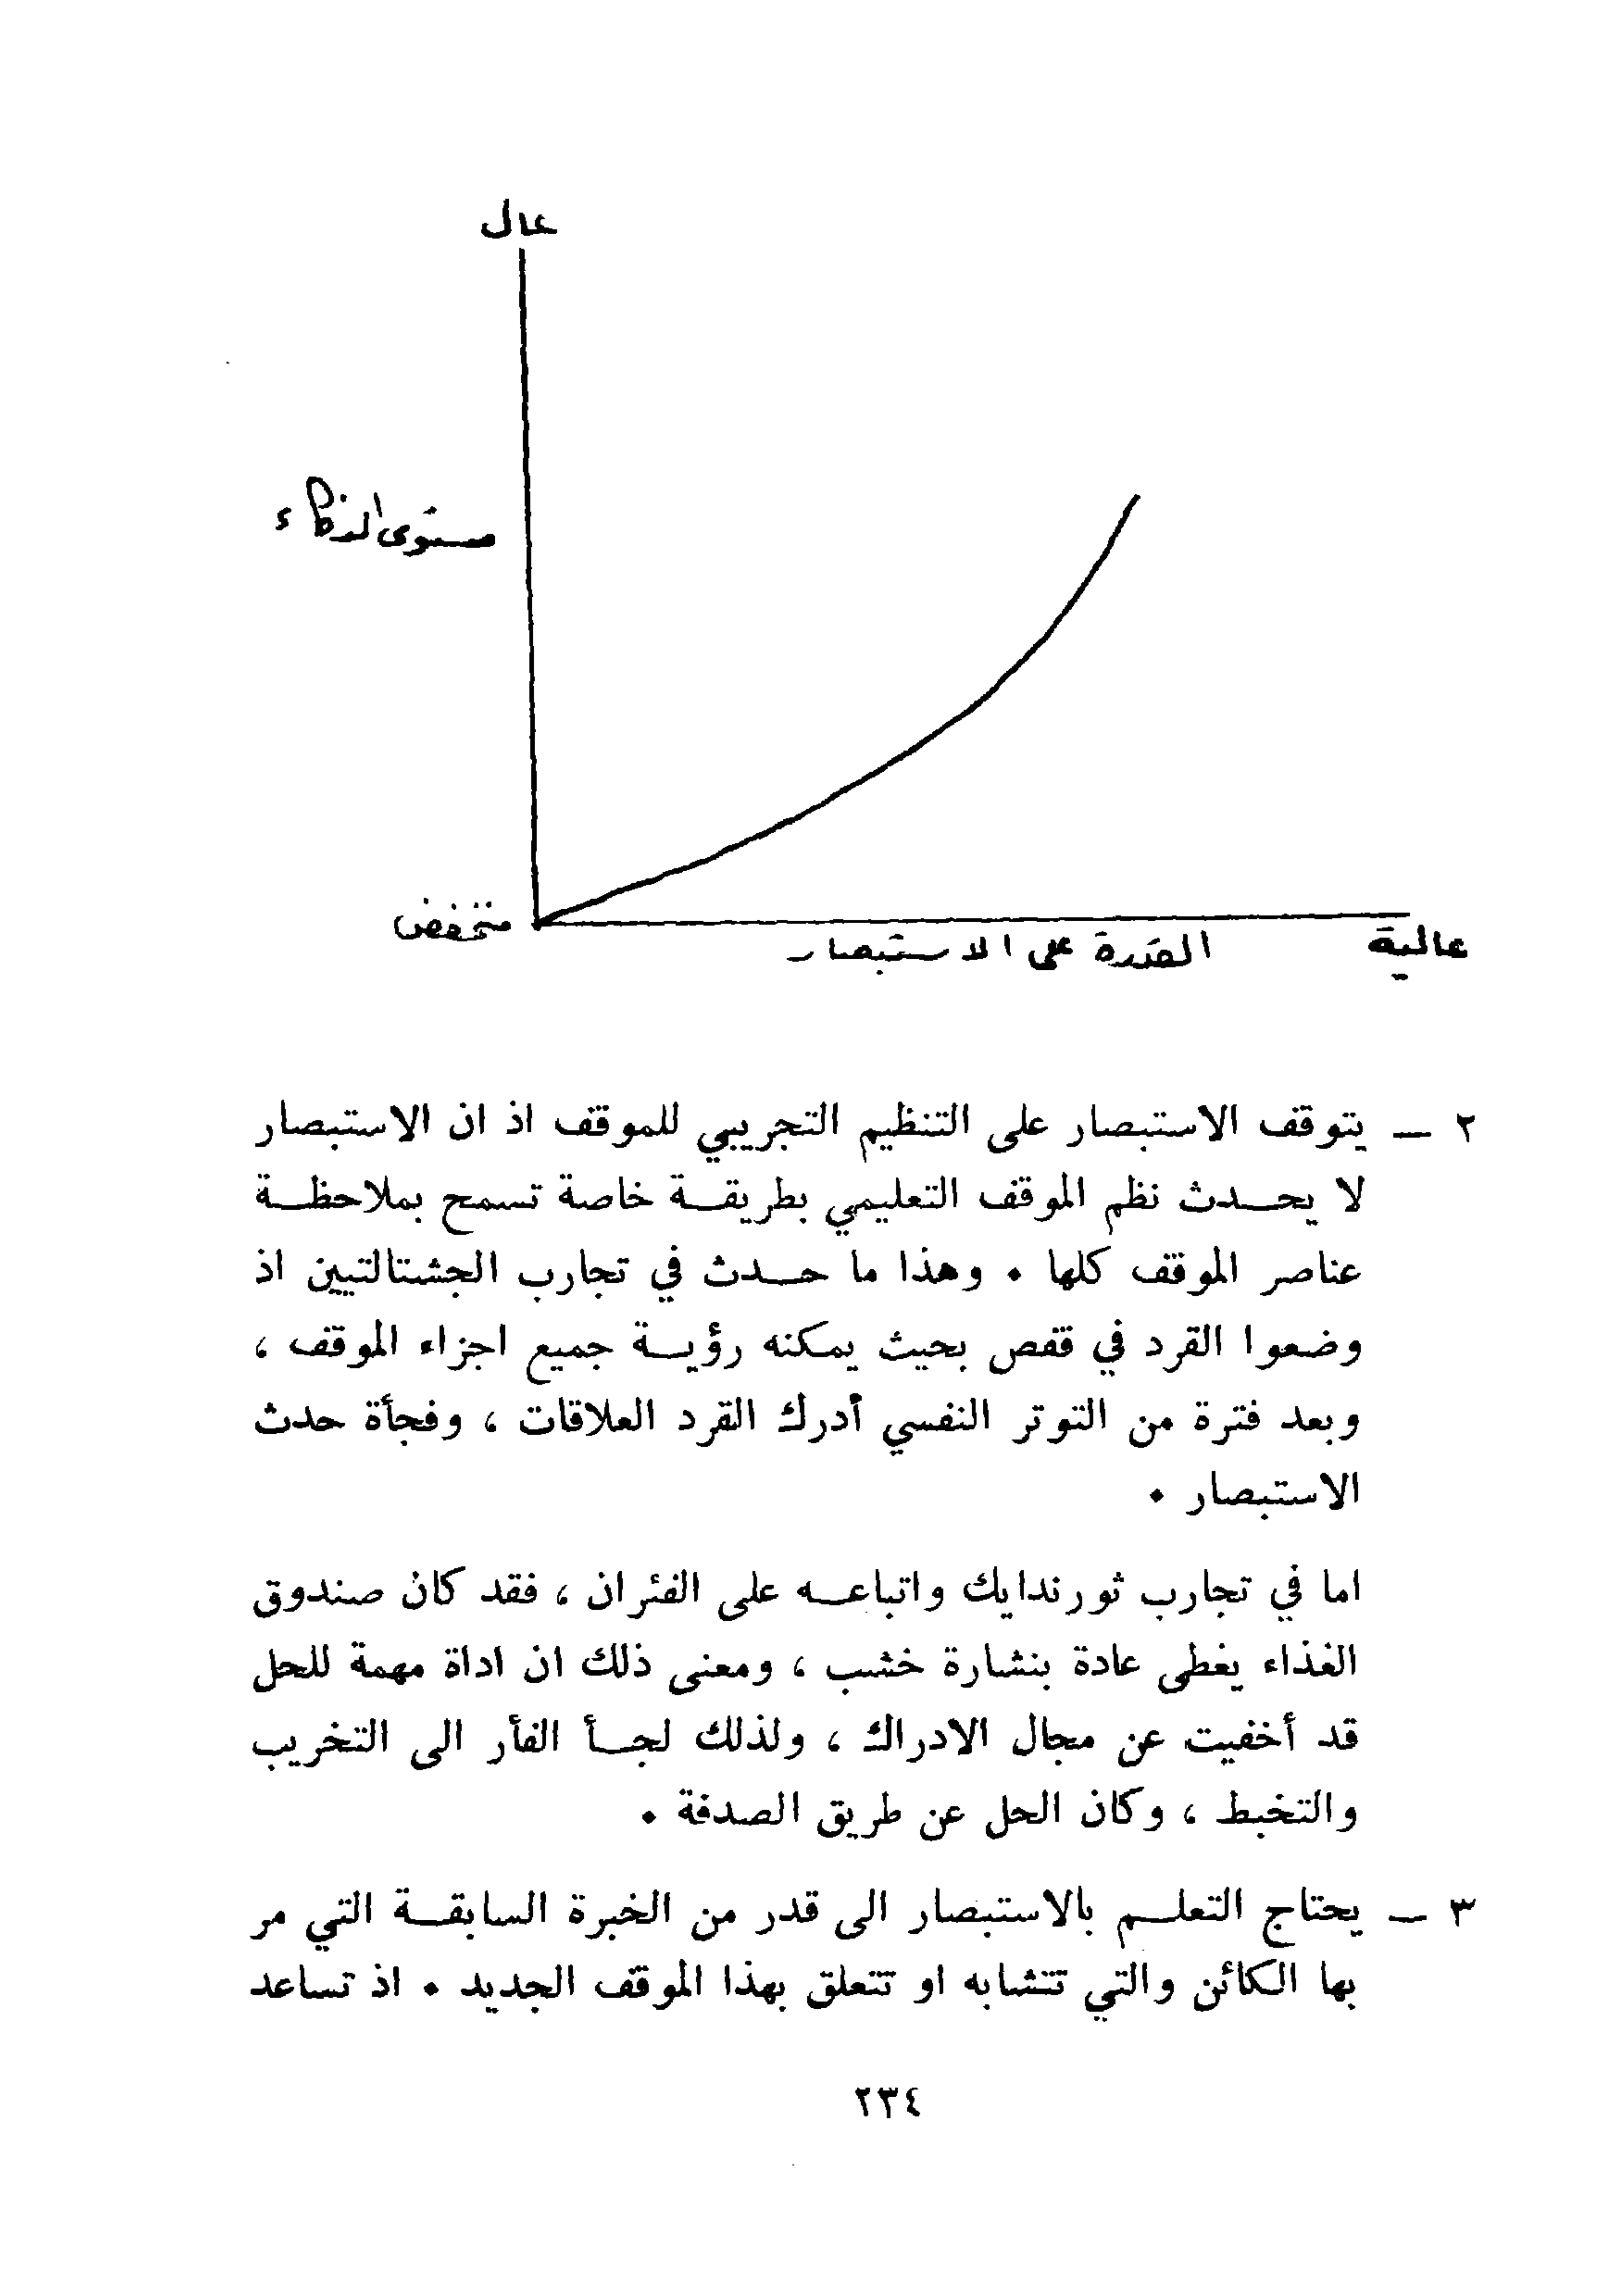 عال
مستوى الذكاء
منخفض
القدرة على الاستبصار
عالية
٢ — يتوقف الاستبصار على التنظيم التجريبي للموقف اذ ان الاستبصار
لا يحـــدث نظم الموقف التعليمي بطريقـــة خاصة تسمح بملاحظـــة
عناصر الموقف كلها ٠ وهذا ما حـــدث في تجارب الجشتالتيين اذ
وضعوا القرد في قفص بحيث يمكنه رؤيـــة جميع اجزاء الموقف ،
وبعد فترة من التوتر النفسي أدرك القرد العلاقات ، وفجأة حدث
الاستبصار ٠
اما في تجارب ثورندايك واتباعـــه على الفئران ، فقد كان صندوق
الغذاء يغطى عادة بنشارة خشب ، ومعنى ذلك ان اداة مهمة للحل
قد أخفيت عن مجال الادراك ، ولذلك لجـــأ الفأر الى التخريب
والتخبط ، وكان الحل عن طريق الصدفة ٠
٣ — يحتاج التعلـــم بالاستبصار الى قدر من الخبرة السابقـــة التي مر
بها الكائن والتي تتشابه او تتعلق بهذا الموقف الجديد ٠ اذ تساعد
٢٣٤